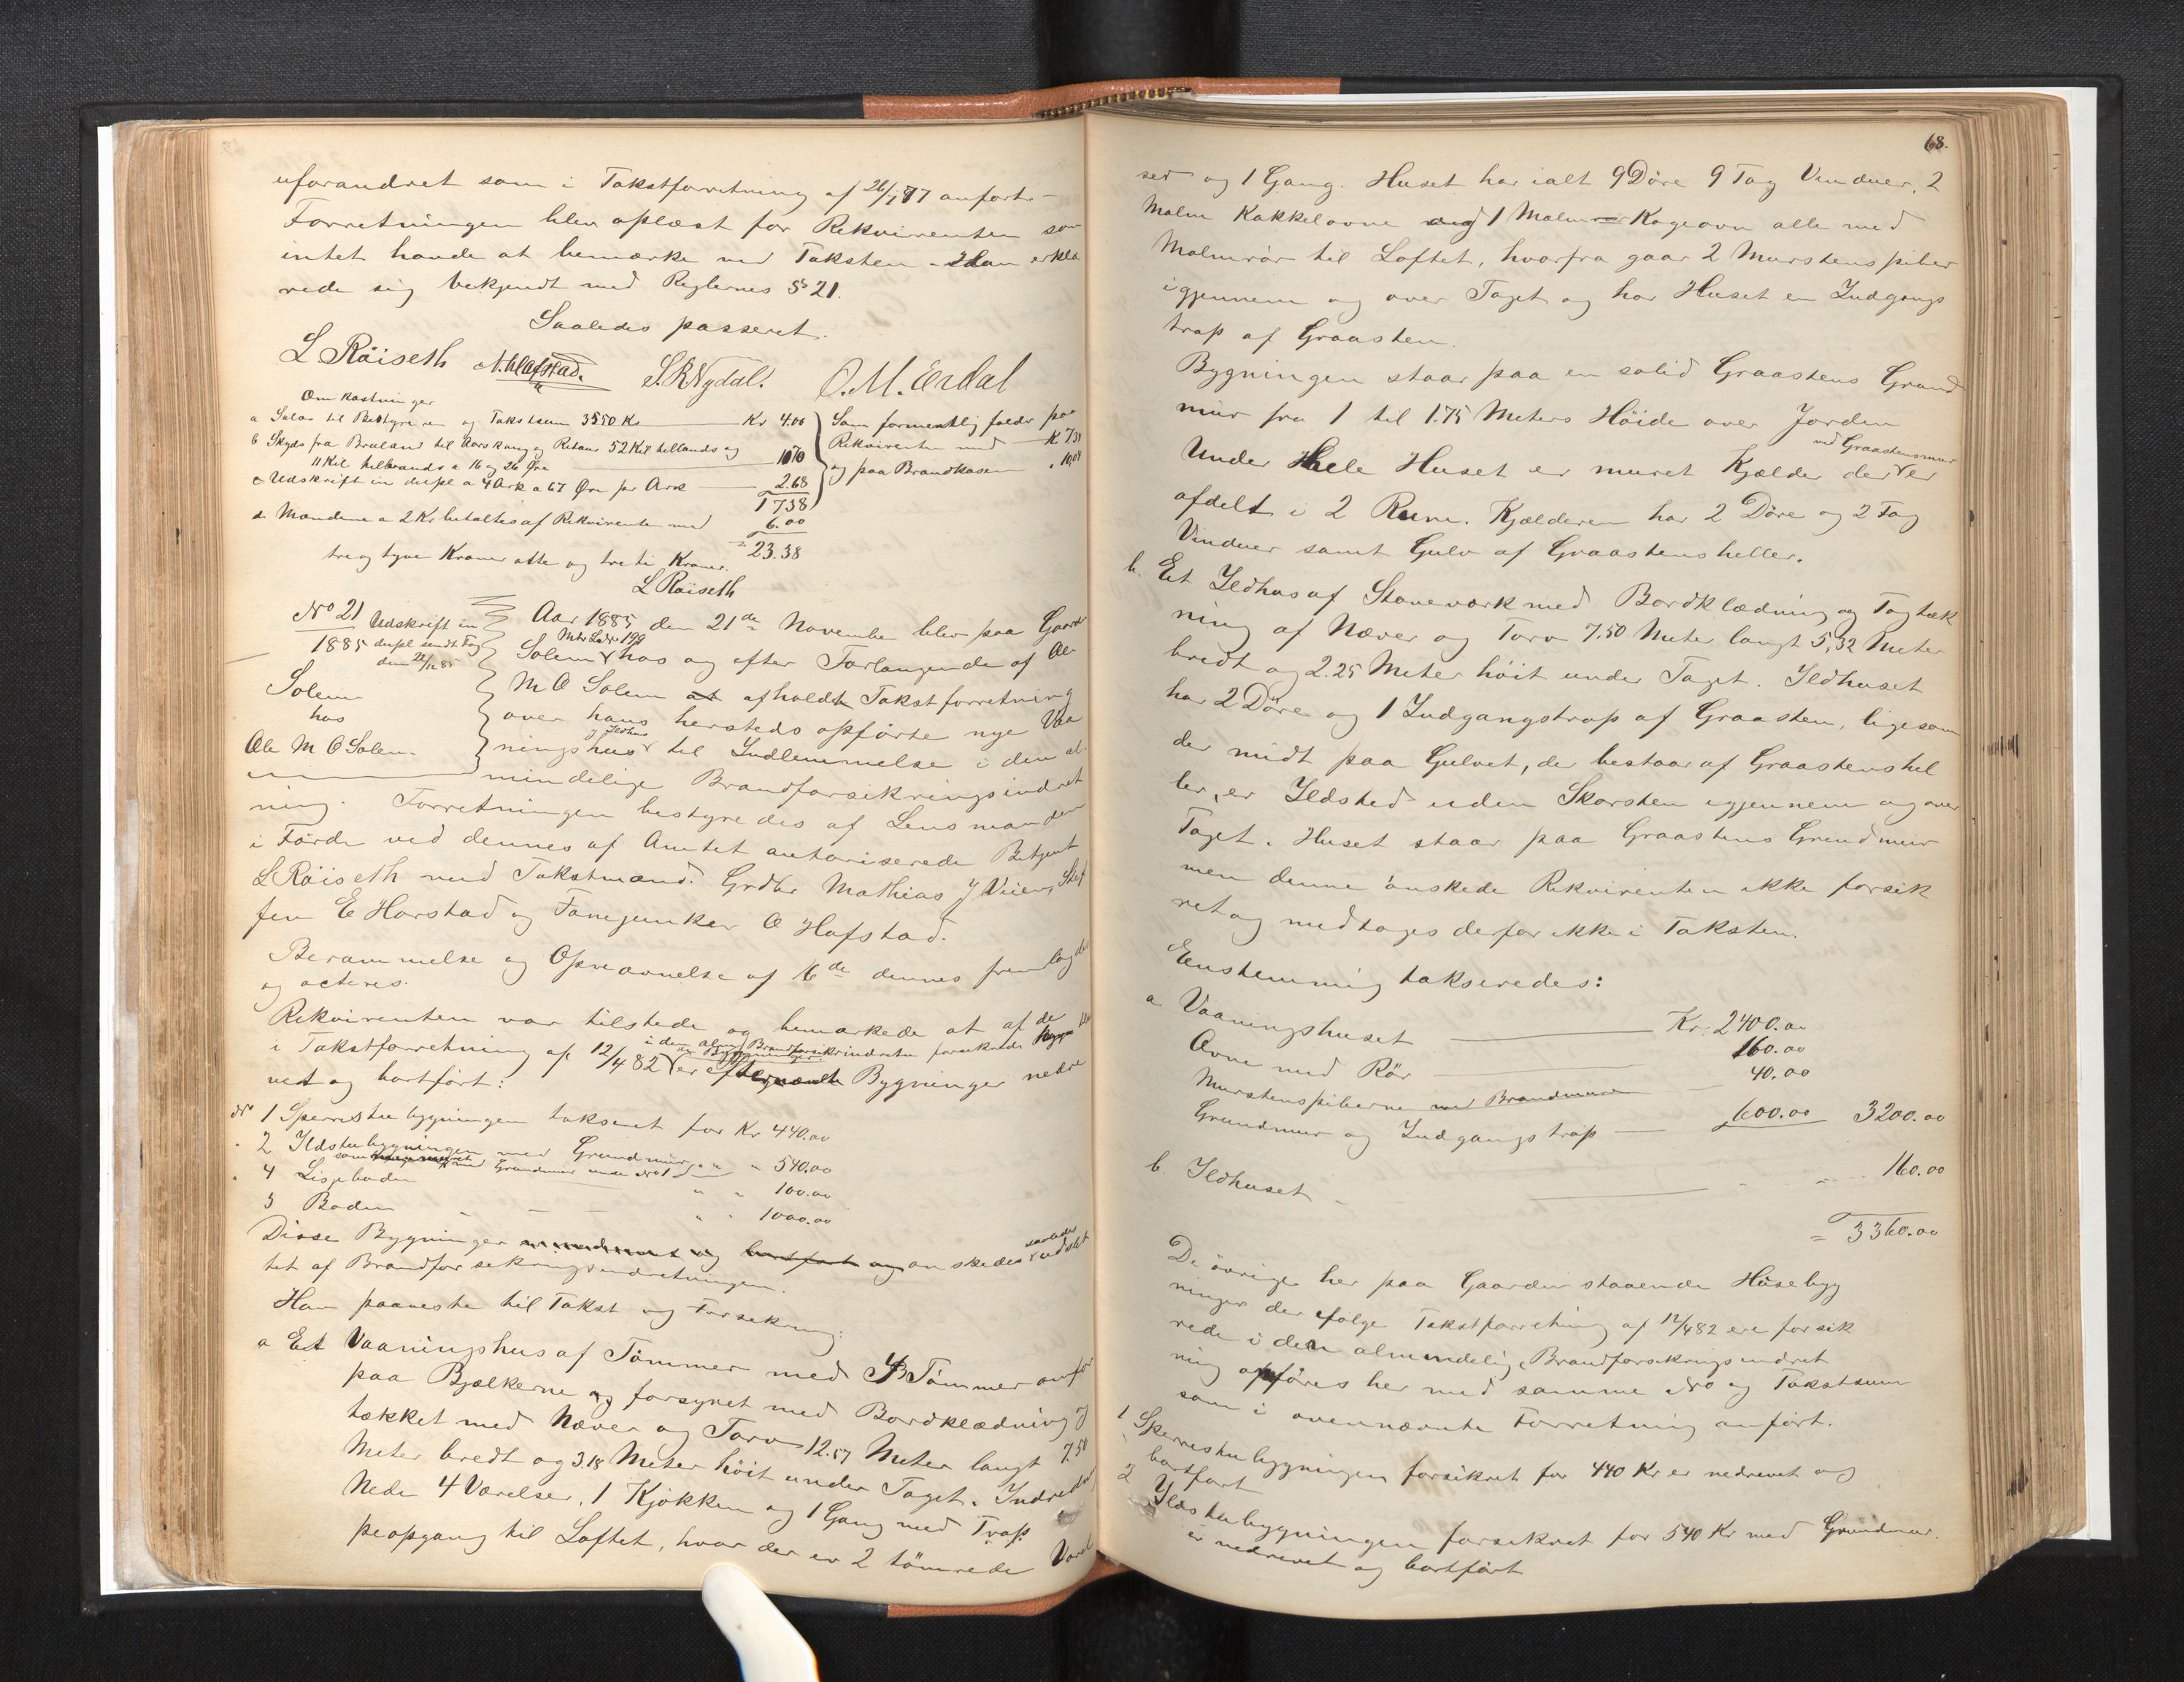 uforandret som i Takstforretning af 26/7 77 anført.-
Forretningen blev oplæst for Rekvirenten som
intet havde at bemærke ved Taksten. Han erklæ
rede sig bekjendt med Reglernes § 21.
Saaledes passeret.
L Röiseth N. Hafstad. S. R Nydal. O. M. Erdal
Omkostninger
a Salær til Bestyreren og Takstsum 3550 Kr Kr 4.00
b Skyds fra Bruland til Aarskaug og Retour 52 Kil tillands og
11 Kil tilvands a 16 og 26 Øre 10.70
c Udskrift in dupl a 4 Ark a 67 Øre pr Ark 2.68
17.38
d Mændene a 2 Kr betaltes af Rekvirenten med 6.00
= 23.38
Som formentlig falder paa
Rekvirenten med K 7.34
og paa Brandkassen " 10,04
tre og tyve Kroner otte og treti Kroner.
L Röiseth
No 21
1885
Udskrift in
dupl sendt Fog
den 22/11 85
Solem
hos
Ole M O Solem
Aar 1885 den 21de November blev paa Gaard
Solem Mtr Ladnr 199 hos og efter Forlangende af Ole
M O Solem at afholdt Takstforretning
over hans hersteds opførte nye Vaa
ningshus og Ildhus til Indlemmelse i den al
mindelige Brandforsikringsindret
ning. Forretningen bestyredes af Lensmanden
i Förde ved dennes af Amtet autoriserede Betjent
L Röiseth med Takstmænd: Grdbr Mathias J Vieng, Stef
fen E Harstad og Fanejunker O Hafstad.
Berammelse og Opnævnelse af 16de dennes fremlagdes
og acteres.
Rekvirenten var tilstede og bemærkede at af de
i Takstforretning af 12/4 82 i den alm. Brandforsikrindretn forsikrede Bygn
er efternævnte Bygninger nedre
vet og bortført:
No 1 Sperrestuebygningen takseret for Kr 440.00
" 2 Ildstuebygningen med Grundmur " " 540.00
som med Grundmur under No 1
" 4 Lisjeboden " " 100.00
5 Boden " " 1000.00
Disse Bygninger ønskedes saaledes udslet
tet af Brandforsikringsindretningen.
Han paaviste til Takst og Forsikring:
a Et Vaaningshus af Tømmer med Tømmer ovenfor
paa Bjælkerne og forsynet med Bordklædning og
tækket med Næver og Torv 12.57 Meter langt 7.50
Meter bredt og 3.18 Meter höit under Taget. Indredet
Nede 4 Værelser, 1 Kjøkken og 1 Gang med Trap
peopgang til Loftet, hvor der er 2 tömrede Værel
68.
ser og 1 Gang. Huset har ialt 9 Döre 9 Fag Vinduer, 2
Malm Kakkelovne og 1 Malm Kogeovn alle med
Malmrör til Loftet, hvorfra gaar 2 Murstenspiber
igjennem og over Taget og har Huset en Indgangs
trap af Graasten.
Bygningen staar paa en solid Graastens Grund
mur fra 1 til 1.75 Meters Höide over Jorden
Under Hele Huset er muret Kjælder der ved Graastensmur er
afdelt i 2 Rum. Kjælderen har 2 Döre og 2 Fag
Vinduer samt Gulv af Graastensheller.
b. Et Ildhus af Stavværk med Bordklædning og Tagtæk
ning af Næver og Torv 7.50 Meter langt 5,32 Meter
bredt og 2.25 Meter höit under Taget. Ildhuset
har 2 Döre og 1 Indgangstrap af Graasten, ligesom
der midt paa Gulvet, der bestaar af Graastenshel
ler, er Ildsted uden Skorsten igjennem og over
Taget. Huset staar paa Graastens Grundmur
men denne ønskede Rekvirenten ikke forsik
ret og medtages derfor ikke i Taksten.
Eenstemmig takseredes:
a Vaaningshuset Kr. 2400.00
Ovne med Rör 160.00
Murstenspiberne med Brandmure 40.00
Grundmur og Indgangstrap 600.00 3200.00
b. Ildhuset 160.00
= 3360.00
De övrige her paa Gaarden staaende Husebyg
ninger der ifølge Takstforretning af 12/4 82 ere forsik
rede i den almindelige Brandforsikringsindret
ning opføres her med samme No og Takstsum
som i ovennævnte Forretning anført.
1 Sperrestuebygningen forsikret for 440 Kr er nedrevet og
bortført
2 Ildstuebygningen forsikret for 540 Kr med Grundmur.
er nedrevet og bortført